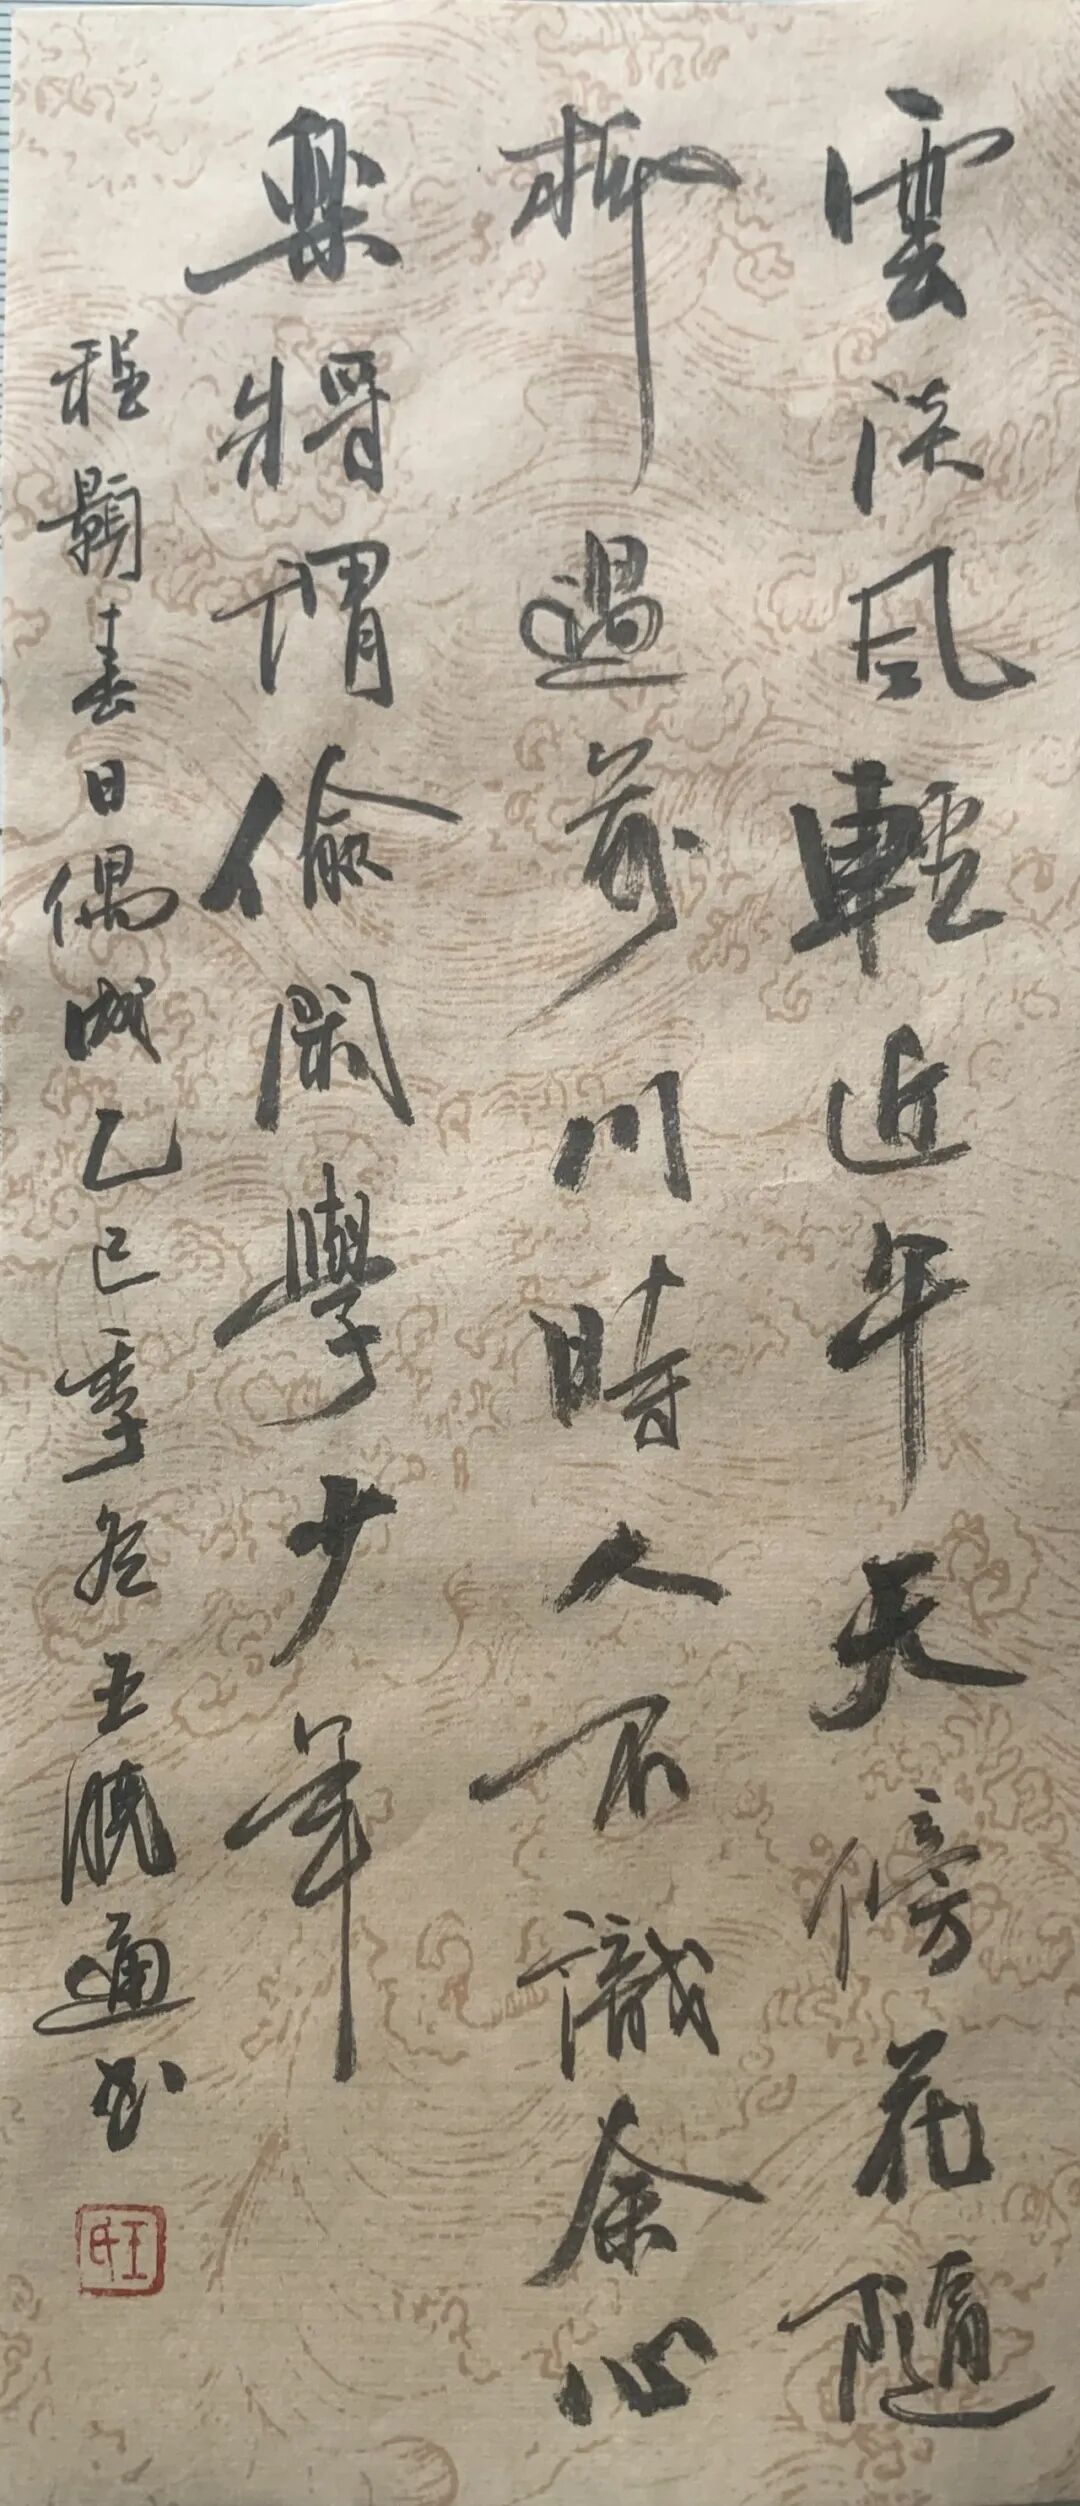 雲淡風輕近午天傍花隨
柳過前川時人不識余心
樂將謂偷閑學少年
程顥春日偶成乙巳季冬王曉通书